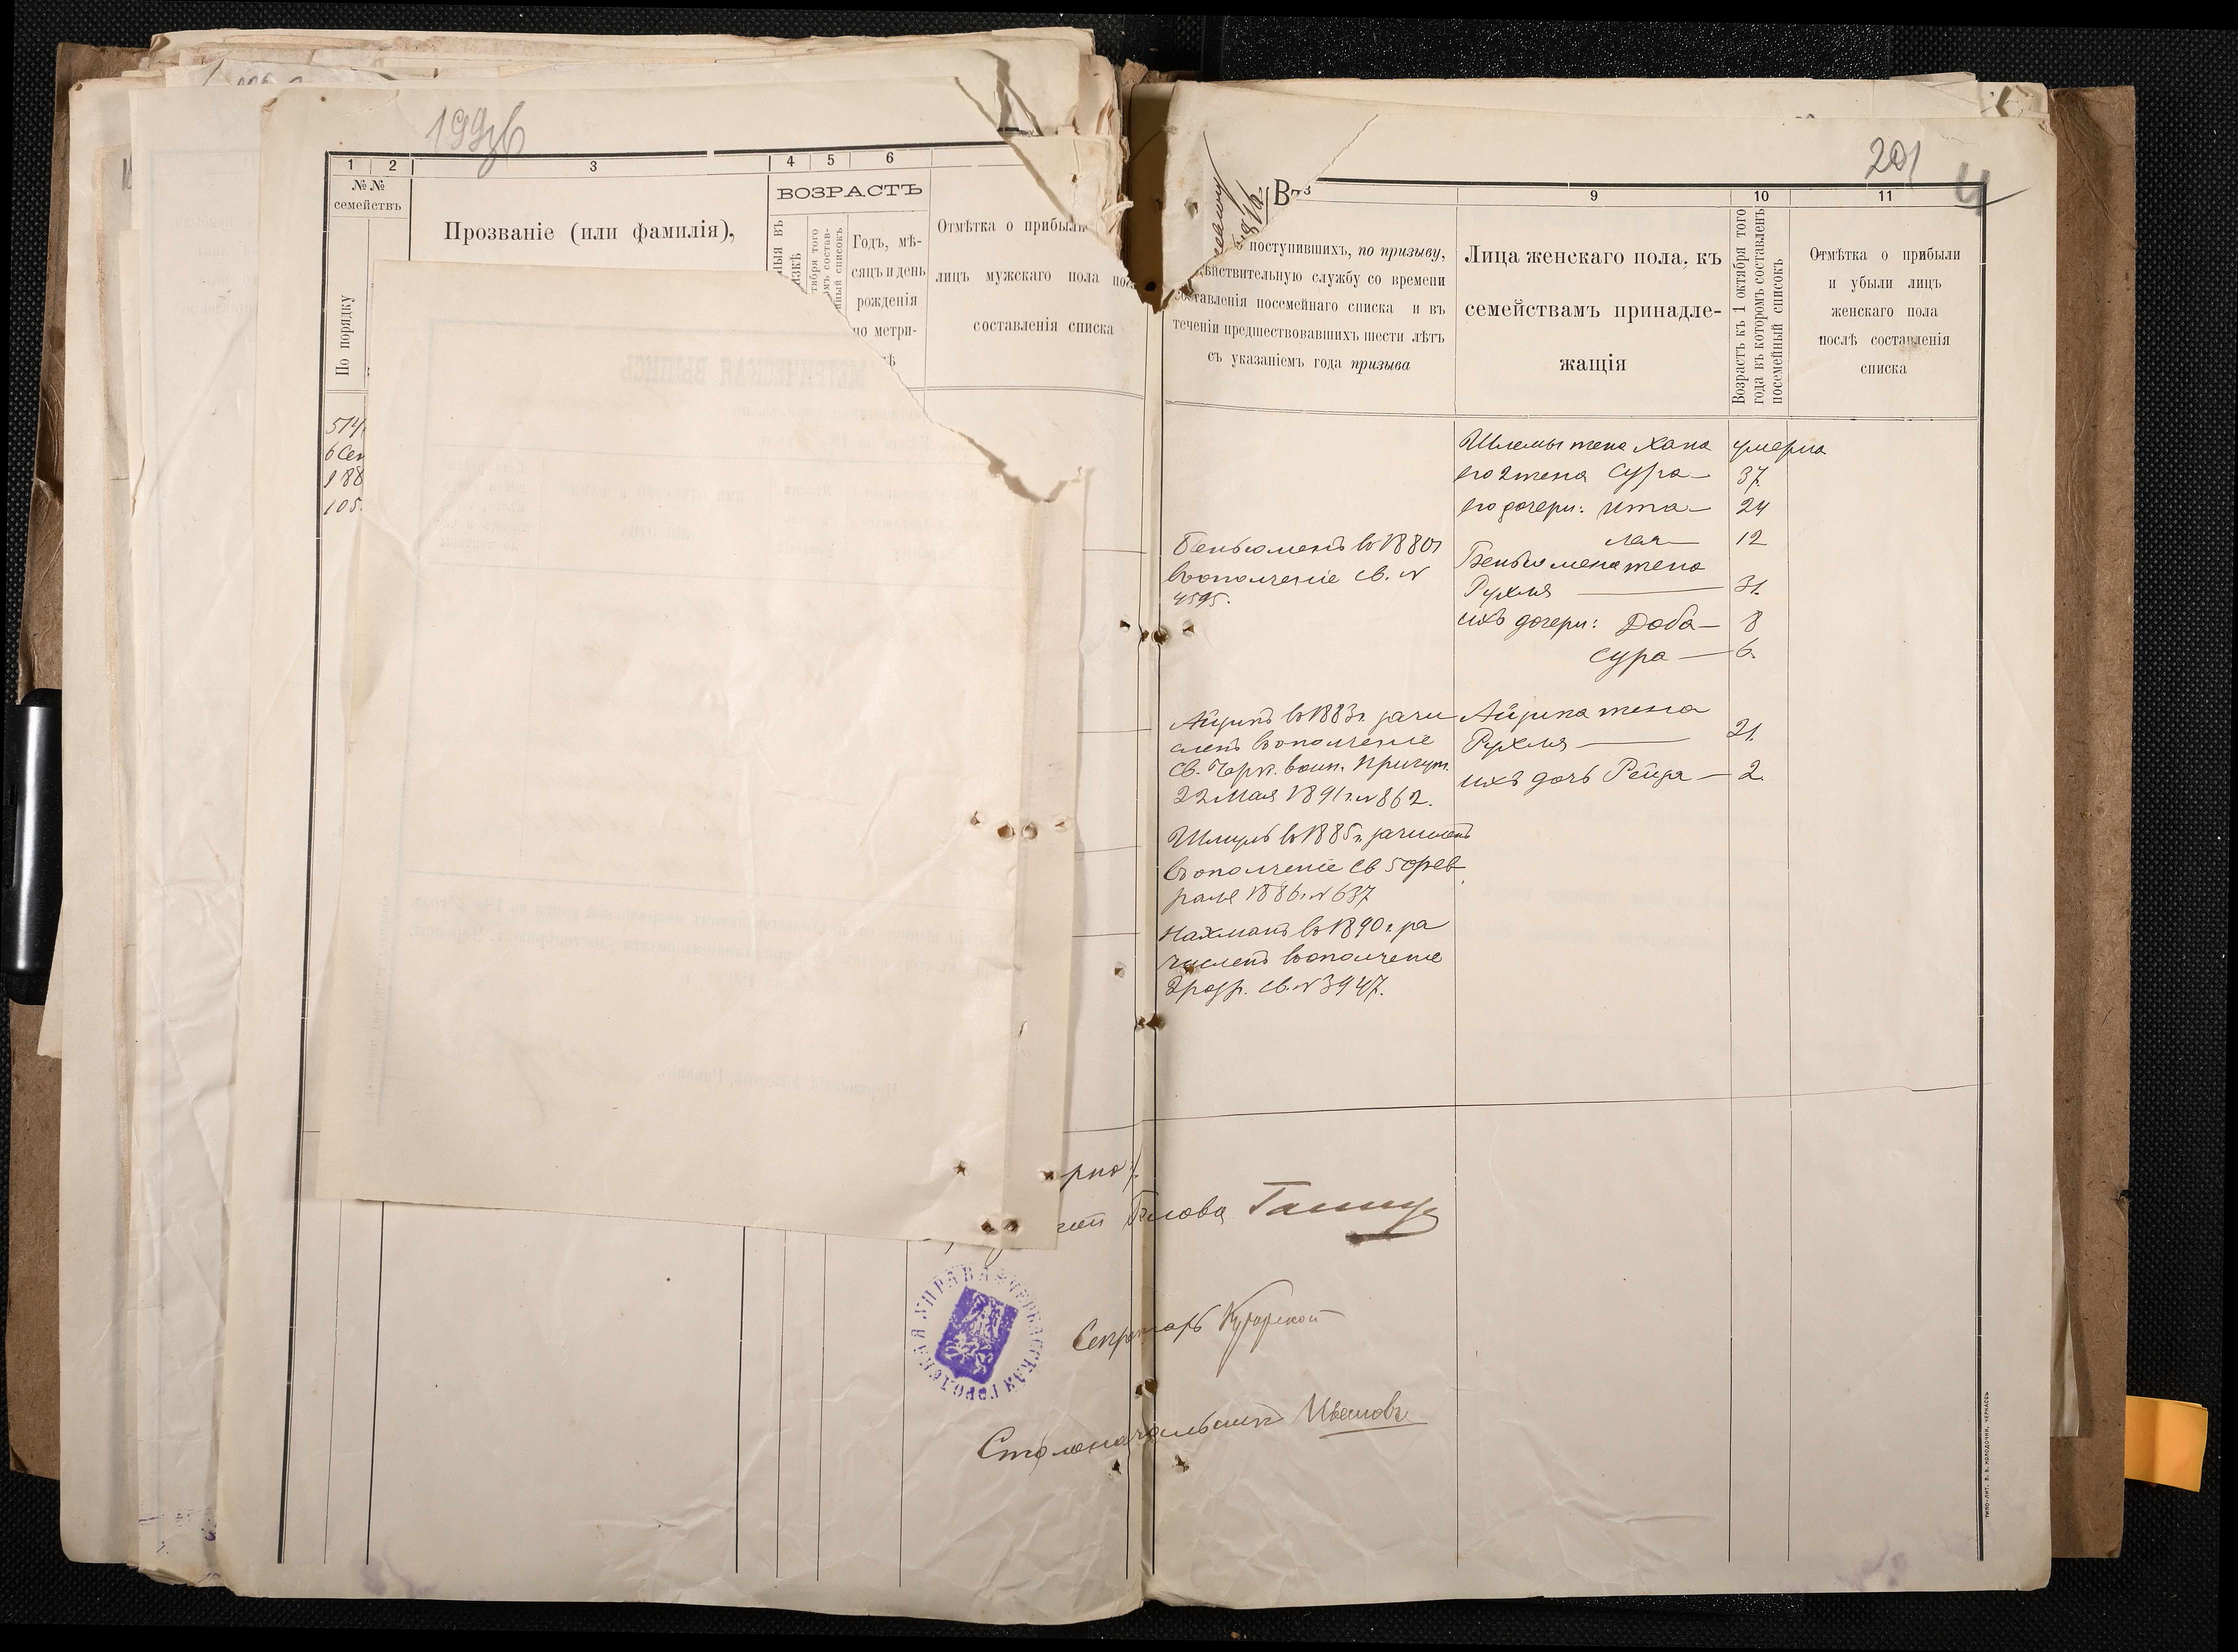 1 2 3 4 5 6
№ № семействъ
По порядку
Прозваніе (или фамилія),
ВОЗРАСТЪ
Годъ, мѣ-
сяцъ и день
рожденія
по метри-
Отмѣтка о прибыли
лицъ мужскаго пола
составленія списка
514
6 Сен
188
105
201
4
9 10 11
поступившихъ, по призыву,
дѣйствительную службу со времени
составленія посемейнаго списка и въ
теченіи предшествовавшихъ шести лѣтъ
съ указаніемъ года призыва
Лица женскаго пола, къ
семействамъ принадле-
жащія
Возрастъ къ 1 октября того
года въ которомъ составленъ
посемейный списокъ
Отмѣтка о прибыли
и убыли лицъ
женскаго пола
послѣ составленія
списка
Шлемы жена Хана умерла
его 2 жена Сура 37.
его дочери: Ита 24
Лая 12
Беньюмена жена
Рухля 31.
ихъ дочери: Доба 8
Сура 6.
Айзика жена
Рухля 21.
ихъ дочь Рейза 2.
Беньюменъ въ 1880 г
въ ополченіе св. №
4595.
Айзикъ въ 1883 г. зачи
сленъ въ ополченіе
св. Черк. воин. Присут.
22 Мая 1891 г. № 862.
Шмуль въ 1885 г. зачисленъ
въ ополченіе св 5 Фев
раля 1886 г. № 637
Нахманъ въ 1890 г. за
численъ въ ополченіе
2 разр. св. № 3947.
Голова
Секретарь
Столоначальникъ
ЧЕРКАССКАЯ ГОРОДСКАЯ УПРАВА
ТИПО-ЛИТ. В. В. КОЛОДОЧКИ, ЧЕРКАСЫ